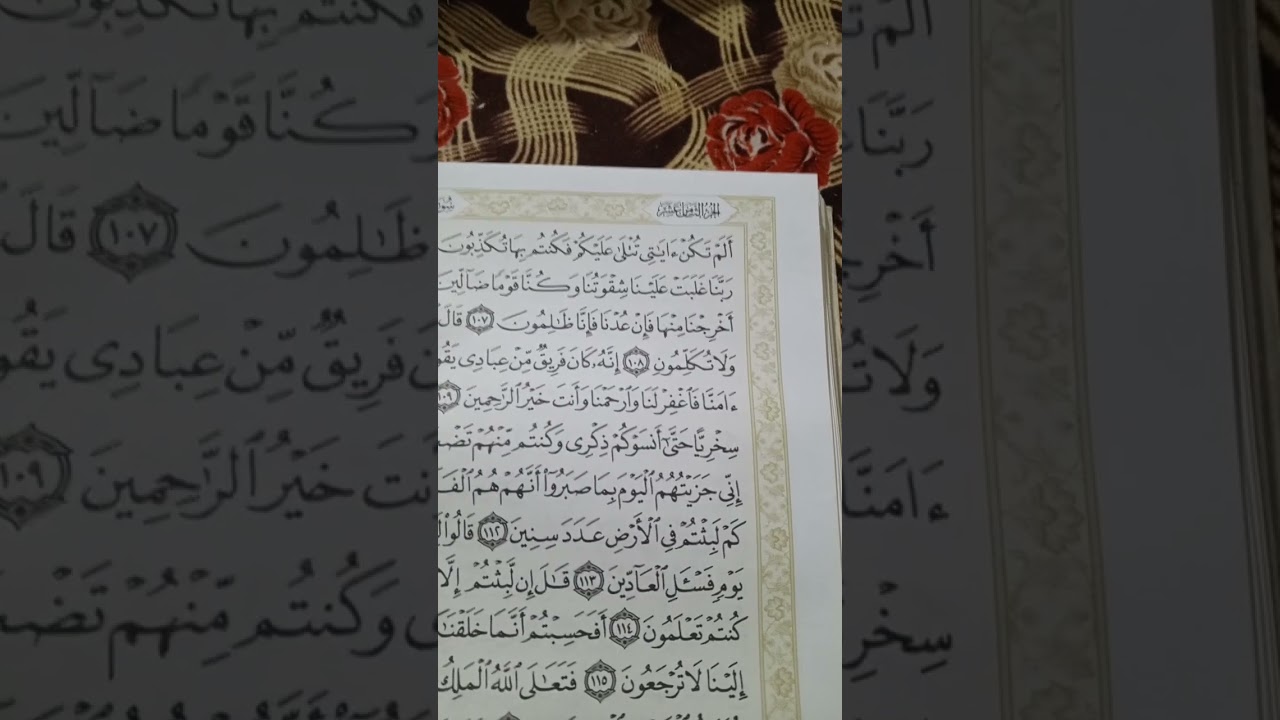 الجزء الثامن عشر
أَلَمْ تَكُنْ ءَايَٰتِى تُتْلَىٰ عَلَيْكُمْ فَكُنتُم بِهَا تُكَذِّبُونَ
رَبَّنَا غَلَبَتْ عَلَيْنَا شِقْوَتُنَا وَكُنَّا قَوْمًا ضَآلِّينَ
أَخْرِجْنَا مِنْهَا فَإِنْ عُدْنَا فَإِنَّا ظَٰلِمُونَ ١٠٧ قَالَ
وَلَا تُكَلِّمُونِ ١٠٨ إِنَّهُۥ كَانَ فَرِيقٌ مِّنْ عِبَادِى يَقُو
ءَامَنَّا فَٱغْفِرْ لَنَا وَٱرْحَمْنَا وَأَنتَ خَيْرُ ٱلرَّٰحِمِينَ ١٠٩
سِخْرِيًّا حَتَّىٰٓ أَنسَوْكُمْ ذِكْرِى وَكُنتُم مِّنْهُمْ تَضْحَ
إِنِّى جَزَيْتُهُمُ ٱلْيَوْمَ بِمَا صَبَرُوٓا۟ أَنَّهُمْ هُمُ ٱلْفَا
كَمْ لَبِثْتُمْ فِى ٱلْأَرْضِ عَدَدَ سِنِينَ ١١٢ قَالُوا۟ لَ
يَوْمٍ فَسْـَٔلِ ٱلْعَآدِّينَ ١١٣ قَٰلَ إِن لَّبِثْتُمْ إِلَّا
كُنتُمْ تَعْلَمُونَ ١١٤ أَفَحَسِبْتُمْ أَنَّمَا خَلَقْنَٰ
إِلَيْنَا لَا تُرْجَعُونَ ١١٥ فَتَعَٰلَى ٱللَّهُ ٱلْمَلِكُ